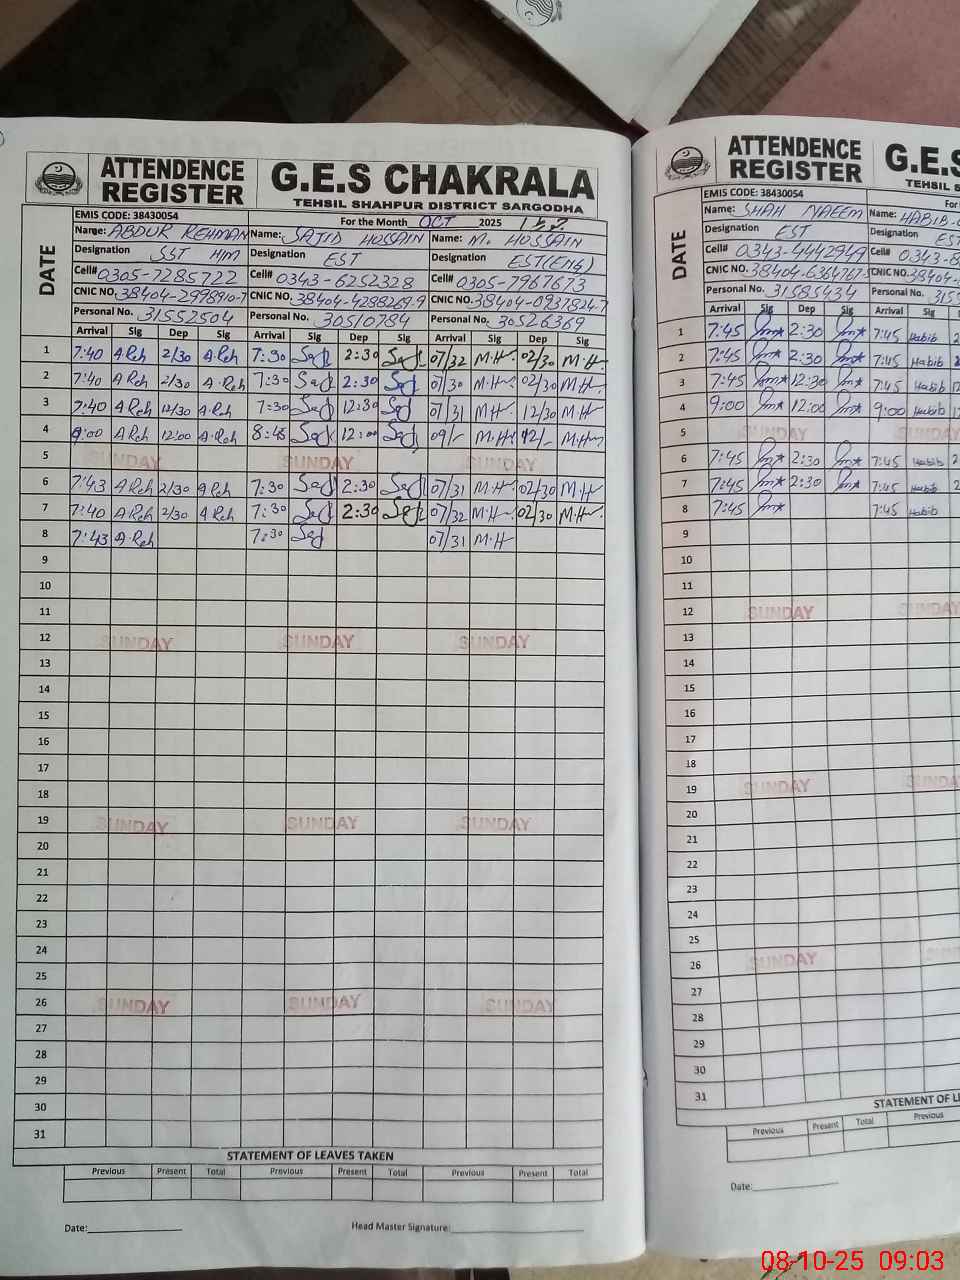 ATTENDENCE REGISTER G.E.S CHAKRALA
TEHSIL SHAHPUR DISTRICT SARGODHA
EMIS CODE: 38430054 For the Month OCT 2025
DATE
Name: ABDUR REHMAN Name: SAJID HUSSAIN Name: M. HUSSAIN
Designation SST HM Designation EST Designation EST(ENG)
Cell# 0305-7285722 Cell# 0343-6252328 Cell# 0305-7967673
CNIC NO. 38404-2998910-7 CNIC NO. 38404-4288269-9 CNIC NO. 38404-0937824-7
Personal No. 31552504 Personal No. 30510784 Personal No. 30526369
Arrival Sig Dep Sig Arrival Sig Dep Sig Arrival Sig Dep Sig
1 7:40 A.Reh 2/30 A.Reh 7:30 Saj 2:30 Saj 07/32 M.H. 02/30 M.H
2 7:40 A.Reh 2/30 A.Reh 7:30 Saj 2:30 Saj 07/30 M.H 02/30 M.H
3 7:40 A.Reh 12/30 A.Reh 7:30 Saj 12:30 Saj 07/31 M.H 12/30 M.H
4 9:00 A.Reh 12:00 A.Reh 8:45 Saj 12:00 Saj 09/- M.H 12/- M.H
5 SUNDAY SUNDAY SUNDAY
6 7:43 A.Reh 2/30 A.Reh 7:30 Saj 2:30 Saj 07/31 M.H 02/30 M.H
7 7:40 A.Reh 2/30 A.Reh 7:30 Saj 2:30 Saj 07/32 M.H 02/30 M.H.
8 7:43 A.Reh 7:30 Saj 07/31 M.H
9
10
11
12 SUNDAY SUNDAY SUNDAY
13
14
15
16
17
18
19 SUNDAY SUNDAY SUNDAY
20
21
22
23
24
25
26 SUNDAY SUNDAY SUNDAY
27
28
29
30
31
STATEMENT OF LEAVES TAKEN
Previous Present Total Previous Present Total Previous Present Total
Date: Head Master Signature:
ATTENDENCE REGISTER G.E.S
TEHSIL S
EMIS CODE: 38430054 For
DATE
Name: SHAH NAEEM Name: HABIB
Designation EST Designation EST
Cell# 0343-4442949 Cell# 0343-8
CNIC NO. 38404-6364767-5 CNIC NO. 38404-
Personal No. 31585434 Personal No. 315
Arrival Sig Dep Sig Arrival Sig
1 7:45 2:30 7:45 Habib 2
2 7:45 2:30 7:45 Habib 2
3 7:45 12:30 7:45 Habib
4 9:00 12:00 9:00 Habib
5 SUNDAY SUNDAY
6 7:45 2:30 7:45 Habib 2
7 7:45 2:30 7:45 Habib 2
8 7:45 7:45 Habib
9
10
11
12 SUNDAY SUNDAY
13
14
15
16
17
18
19 SUNDAY SUNDAY
20
21
22
23
24
25
26 SUNDAY SUN
27
28
29
30
31
STATEMENT OF L
Previous Present Total Previous
Date:
08-10-25 09:03